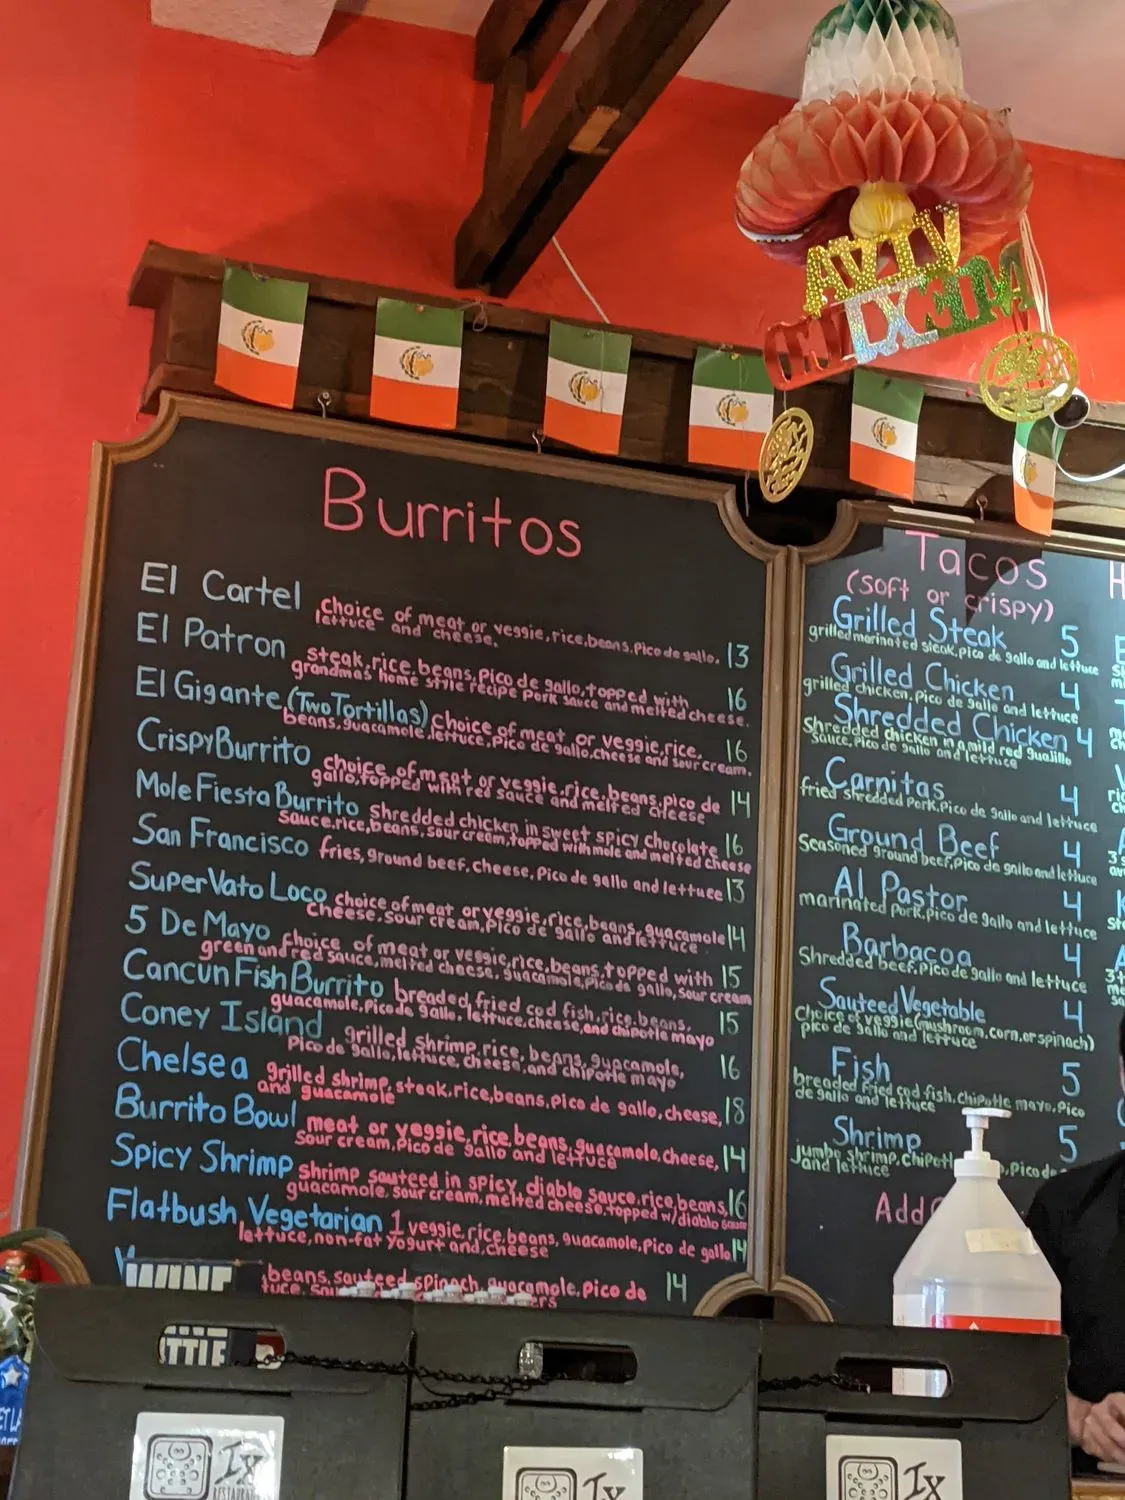 VIVA
MEXICO
Burritos
El Cartel
choice of meat or veggie, rice, beans, Pico de gallo, 13
lettuce and cheese.
El Patron
steak, rice, beans, Pico de gallo, topped with 16
grandmas home style recipe Pork sauce and melted cheese.
El Gigante (Two Tortillas) choice of meat or veggie, rice, 16
beans, guacamole, lettuce, Pico de gallo, cheese and sour cream.
Crispy Burrito
choice of meat or veggie, rice, beans, pico de 14
gallo, topped with red sauce and melted cheese
Mole Fiesta Burrito Shredded chicken in sweet spicy chocolate 16
sauce, rice, beans, sour cream, topped with mole and melted cheese
San Francisco fries, ground beef, cheese, Pico de gallo and lettuce 13
Super Vato Loco choice of meat or veggie, rice, beans, guacamole 14
cheese, sour cream, Pico de gallo and lettuce
5 De Mayo choice of meat or veggie, rice, beans, topped with 15
green and red sauce, melted cheese, guacamole, pico de gallo, sour cream
Cancun Fish Burrito breaded, fried cod fish, rice, beans, 15
guacamole, Pico de gallo, lettuce, cheese, and chipotle mayo
Coney Island grilled shrimp, rice, beans, guacamole, 16
Pico de gallo, lettuce, cheese, and chipotle mayo
Chelsea grilled shrimp, steak, rice, beans, Pico de gallo, cheese, 18
and guacamole
Burrito Bowl meat or veggie, rice, beans, guacamole, cheese, 14
sour cream, Pico de gallo and lettuce
Spicy Shrimp shrimp sauteed in spicy diablo sauce, rice, beans, 16
guacamole, sour cream, melted cheese, topped w/ diablo sauce
Flatbush Vegetarian 1 veggie, rice, beans, guacamole, Pico de gallo 14
lettuce, non-fat yogurt and cheese
beans, sauteed spinach, guacamole, Pico de 14
Tacos
(soft or crispy)
Grilled Steak 5
grilled marinated steak, Pico de gallo and lettuce
Grilled Chicken 4
grilled chicken, Pico de gallo and lettuce
Shredded Chicken 4
Shredded chicken in a mild red guajillo
Sauce, Pico de gallo and lettuce
Carnitas 4
fried shredded Pork, Pico de gallo and lettuce
Ground Beef 4
Seasoned ground beef, Pico de gallo and lettuce
Al Pastor 4
marinated Pork, Pico de gallo and lettuce
Barbacoa 4
Shredded beef, Pico de gallo and lettuce
Sauteed Vegetable 4
Choice of veggie (mushroom, corn, or spinach)
pico de gallo and lettuce
Fish 5
breaded fried cod fish, chipotle mayo, Pico
de gallo and lettuce
Shrimp 5
jumbo shrimp, Pico de
and lettuce
Add
WINE
Ix
RESTAURANT
Ix
Ix